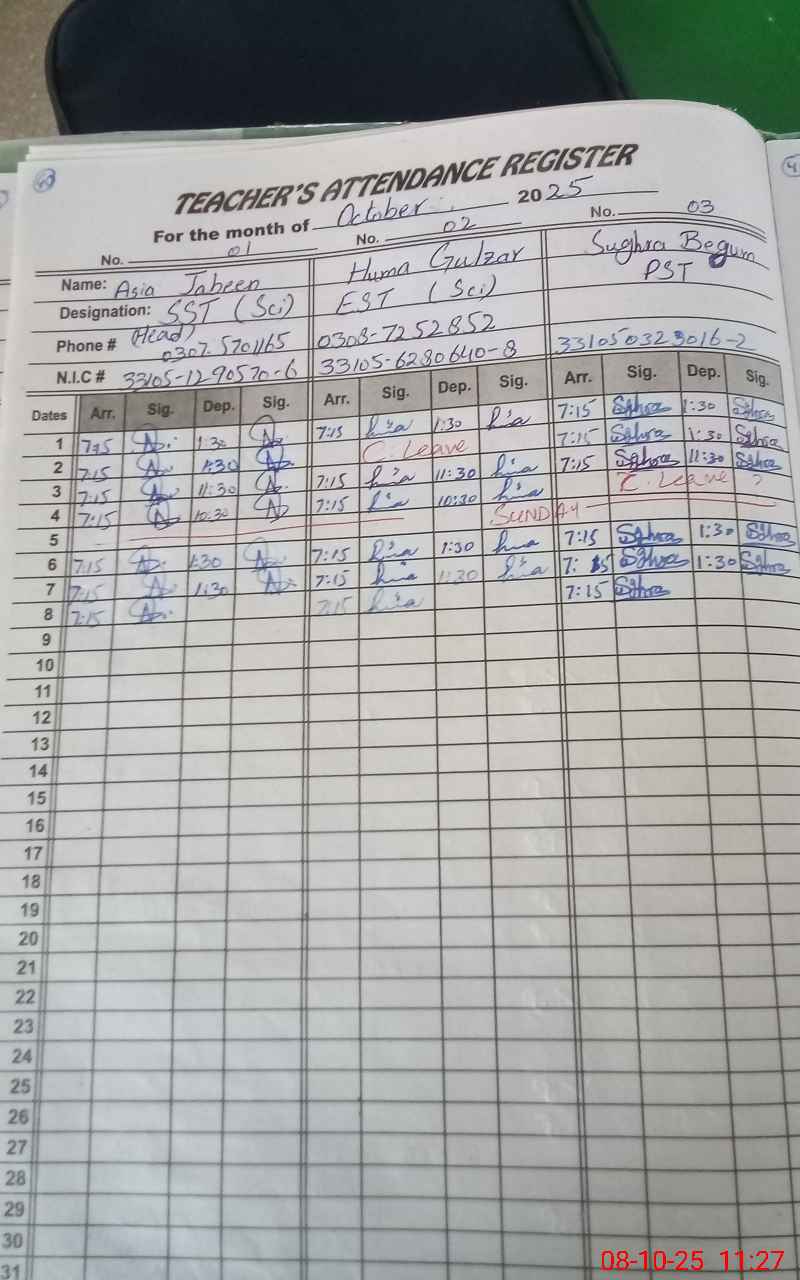 TEACHER'S ATTENDANCE REGISTER
For the month of October 2025
No. 01 No. 02 No. 03
Name: Asia Jabeen Huma Gulzar Sughra Begum
Designation: SST (Sci) EST (Sci) PST
(Head)
Phone # 0307.5701165 0308-7252852
N.I.C # 33105-1290570-6 33105-6280640-8 331050323016-2
Dates Arr. Sig. Dep. Sig. Arr. Sig. Dep. Sig. Arr. Sig. Dep. Sig.
1 7:15 1:30 7:15 1:30 7:15 Sghra 1:30 Sghra
2 7:15 1:30 C. Leave 7:15 Sghra 1:30 Sghra
3 7:15 11:30 7:15 11:30 7:15 Sghra 11:30 Sghra
4 7:15 10:30 7:15 10:30 C. Leave
5 SUNDAY
6 7:15 1:30 7:15 1:30 7:15 Sghra 1:30 Sghra
7 7:15 1:30 7:15 1:30 7:15 Sghra 1:30 Sghra
8 7:15 7:15 7:15 Sghra
9
10
11
12
13
14
15
16
17
18
19
20
21
22
23
24
25
26
27
28
29
30
31
08-10-25 11:27